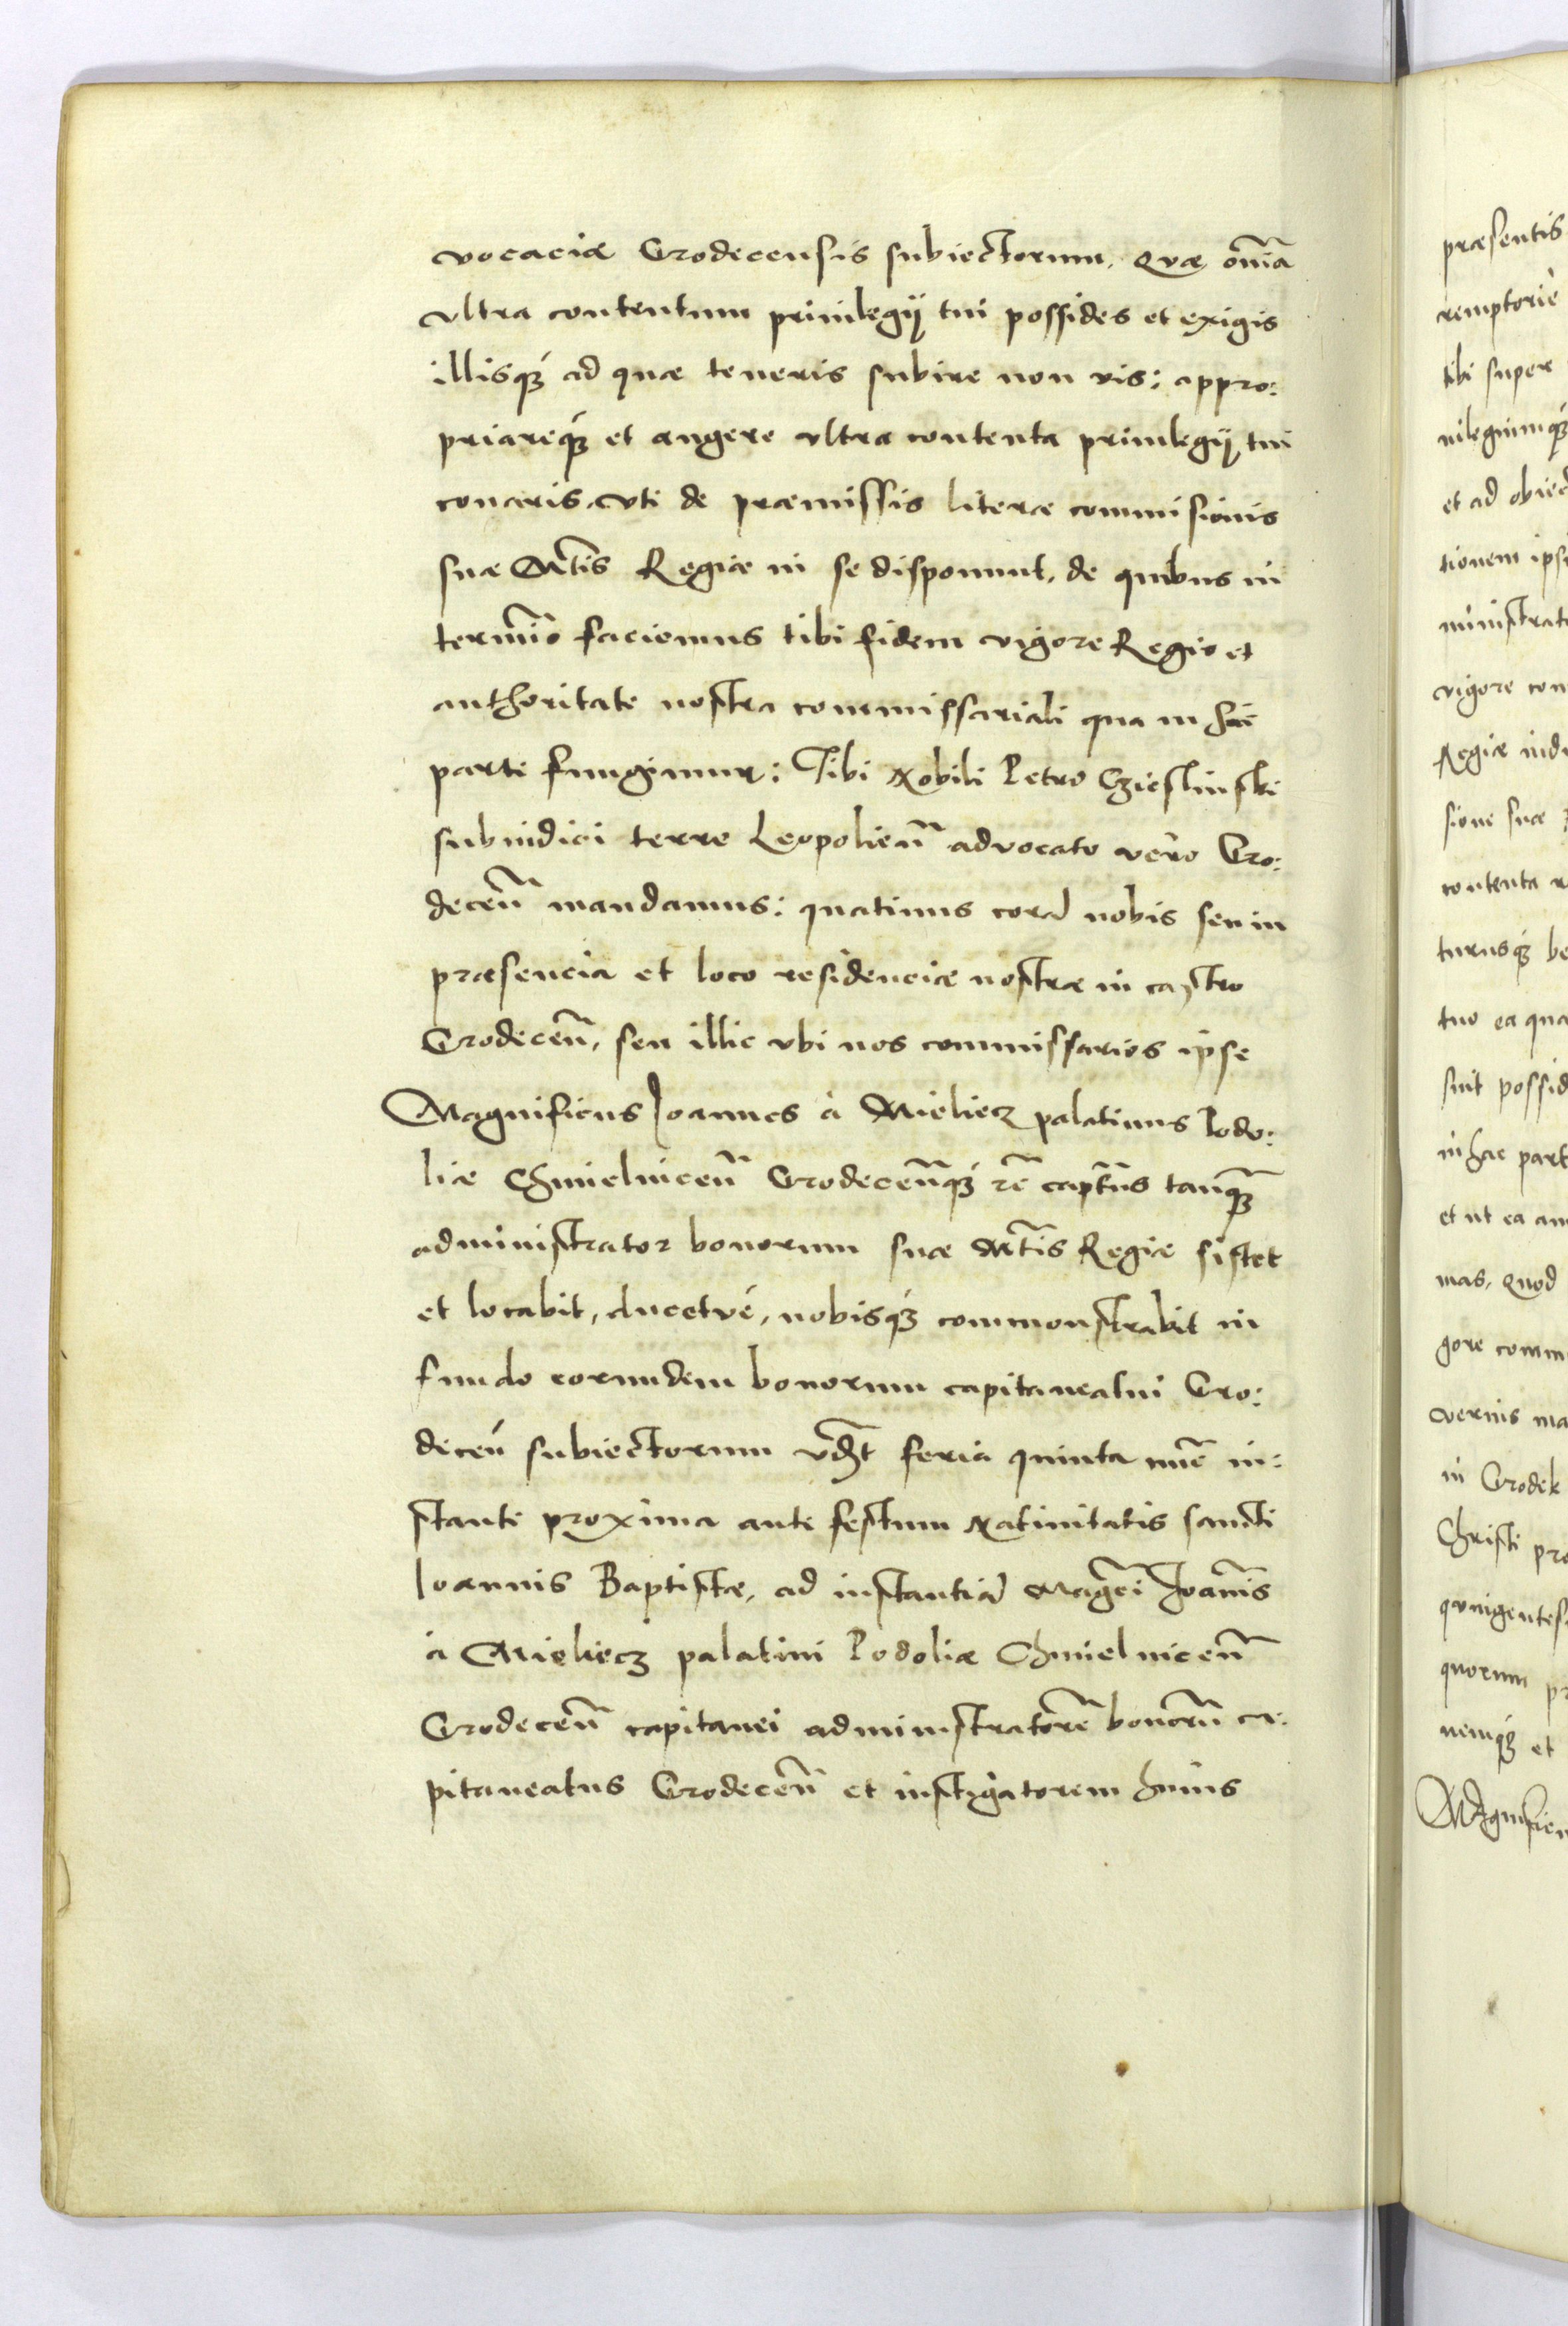 vocaciæ Grodecensis subiectorum. Quæ omīa
vltra contentum priuilegij tui possides et exigis
illisq́ꝫ ad quæ teneris subire non vis: appro:
priareq́ꝫ et augere vltra contenta priuilegij tui
conaris. Vti de præmissis literæ commisionis
suæ Mt̄is Regiæ in se disponunt, de quibus in
termīo faciemus tibi fidem vigore Regio et
authoritate nostra commissariali qua in hac
parte fungimur: Tibi Nobili Petro Czieslinski
subiudici terre Leopolien̄ advocato vero Gro:
decen̄ mandamus: quatinus corā nobis seu in
præsencia et loco residenciæ nostræ in castro
Grodecen̄, seu illic vbi nos commissarios ipse
Magnificus Ioannes à Mieliecz palatinus Podo:
liæ Chmielnicen̄ Grodecen̄q́ꝫ zc̄ capt̄ns tanq̄ꝫ
administrator bonorum suæ Mt̄is Regiæ sistet
et locabit, ducetvé, nobisq́ꝫ commonstrabit in
fundo eorumdem bonorum capitaneatui Gro:
decen̄ subiectorum vdꝫt feria quinta nūc in:
stante proxima ante festum Natiuitatis sancti
Ioannis Baptistæ, ad instantiā Mag̅ci Ioan̄is
à Mieliecz palatini Podoliæ Chmielnicen̄
Grodecen̄ capitanei administratorē bonorū ca:
pitaneatus Grodecen̄ et instigatorem huius
præsentis
remptorie
tibi super
uilegiumq́ꝫ
et ad obiec
tionem ips
ministrat
vigore com
Regiæ indu
sione suæ
contenta
turusq́ꝫ be
tuo ea qua
sint possid
in hac part
et ut ea am
mas, quod
gore comm
ma
in Grodek
Christi pro
quingentes
quorum pr
nemq́ꝫ et